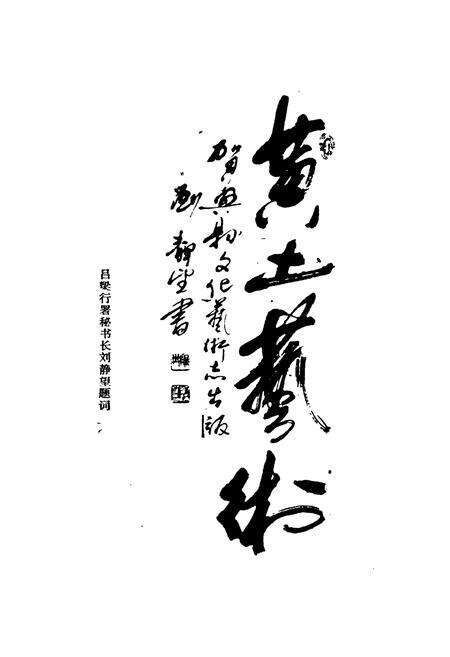 黄土藝術
賀興縣文化藝術志出版
劉靜望書
吕梁行署秘书长刘静望题词